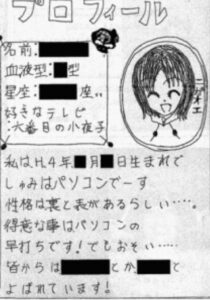 プロフィール
名前:
血液型: 型
星座: 座。。
好きなテレビ
:六番目の小夜子
ニガオエ
私はH.4年 月 日生まれで
しゅみはパソコンでーす
性格は裏と表があるらしい…。
得意な事はパソコンの
早打ちです!でもおそい……
皆からは とか と
よばれています!